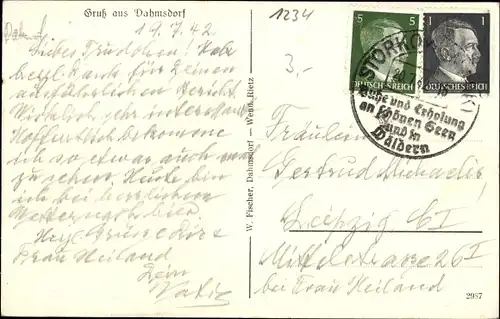 Gruß aus Dahmsdorf
19.7.42
1234
3.-
Liebes Trudchen! Hab
herzl. Dank für Deinen
ausführlichen Bericht.
Wirklich sehr interessant
Hoffentlich bekomme
ich so etwas auch mal
zu sehen. Heute bin
ich bei herrlichem
Wetter hier.
Herzl. Grüsse Dir u.
Frau Heiland
Dein
Vati
W. Fischer, Dahmsdorf — Wend. Rietz
5 5
DEUTSCHES REICH
1 1
DEUTSCHES REICH
STORKOW
Ruhe und Erholung
an schönen Seen
und in
Wäldern
Fräulein
Gertrud Michaelis
Leipzig C I
Mittelstrasse 26 I
bei Frau Heiland
2987